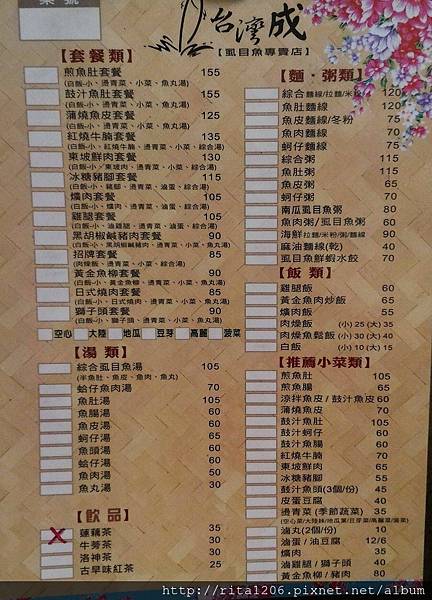 桌號
台灣成
【虱目魚專賣店】
【套餐類】
煎魚肚套餐 155
(白飯-小、燙青菜、小菜、魚丸湯)
鼓汁魚肚套餐 155
(白飯-小、燙青菜、小菜、魚丸湯)
蒲燒魚皮套餐 125
(白飯-小、燙青菜、小菜、魚丸湯)
紅燒牛腩套餐 135
(白飯-小、紅燒牛腩、燙青菜、小菜、綜合湯)
東坡鮮肉套餐 130
(白飯-小、東坡肉、燙青菜、小菜、綜合湯)
冰糖豬腳套餐 115
(白飯-小、豬腳、燙青菜、滷蛋、綜合湯)
爌肉套餐 90
(白飯-小、爌肉、燙青菜、滷蛋、綜合湯)
雞腿套餐 105
(白飯-小、滷雞腿、燙青菜、滷蛋、綜合湯)
黑胡椒鹹豬肉套餐 90
(白飯-小、黑胡椒鹹豬肉、燙青菜、小菜、魚丸湯)
招牌套餐 85
(肉燥飯、燙青菜、小菜、綜合湯)
黃金魚柳套餐 90
(白飯-小、黃金魚柳、燙青菜、小菜、魚丸湯)
日式燒肉套餐 85
(白飯-小、日式燒肉、燙青菜、小菜、魚丸湯)
獅子頭套餐 90
(白飯-小、獅子頭、燙青菜、小菜、魚丸湯)
空心 大陸 地瓜 豆芽 高麗 菠菜
【湯 類】
綜合虱目魚湯 105
(半魚肚、魚皮、魚肉、魚丸)
蛤仔魚肉湯 70
魚肚湯 105
魚腸湯 60
魚皮湯 60
蚵仔湯 65
魚頭湯 60
蛤仔湯 60
魚肉湯 50
魚丸湯 30
【飲 品】
蓮藕茶 35
牛蒡茶 30
洛神茶 30
古早味紅茶 25
【麵‧粥類】
綜合麵線/拉麵/米粉 120
魚肚麵線 120
魚皮麵線/冬粉 75
魚肉麵線 70
蚵仔麵線 75
綜合粥 115
魚肚粥 115
魚皮粥 65
蚵仔粥 70
南瓜虱目魚粥 80
魚肉粥/虱目魚粥 60
海鮮拉麵/米粉/粥/麵線 90
麻油麵線(乾) 40
虱目魚鮮蝦水餃 70
【飯 類】
雞腿飯 60
黃金魚肉炒飯 65
爌肉飯 55
肉燥飯 (小) 25 (大) 35
肉燥魚鬆飯 (小) 30 (大) 40
白飯 (小) 10 (大) 15
【推薦小菜類】
煎魚肚 105
煎魚腸 65
涼拌魚皮 / 鼓汁魚皮 60
蒲燒魚皮 70
鼓汁魚肚 110
鼓汁蚵仔 60
鼓汁魚腸 60
紅燒牛腩 70
東坡鮮肉 65
冰糖豬腳 55
鼓汁魚頭(3個/份) 45
皮蛋豆腐 40
燙青菜 (季節蔬菜) 35
滷丸(2個/份) 10
滷蛋 / 油豆腐 12/6
爌肉 35
滷雞腿 / 獅子頭 40
黃金魚柳 / 豬肉 80
http://rita1206.pixnet.net/album